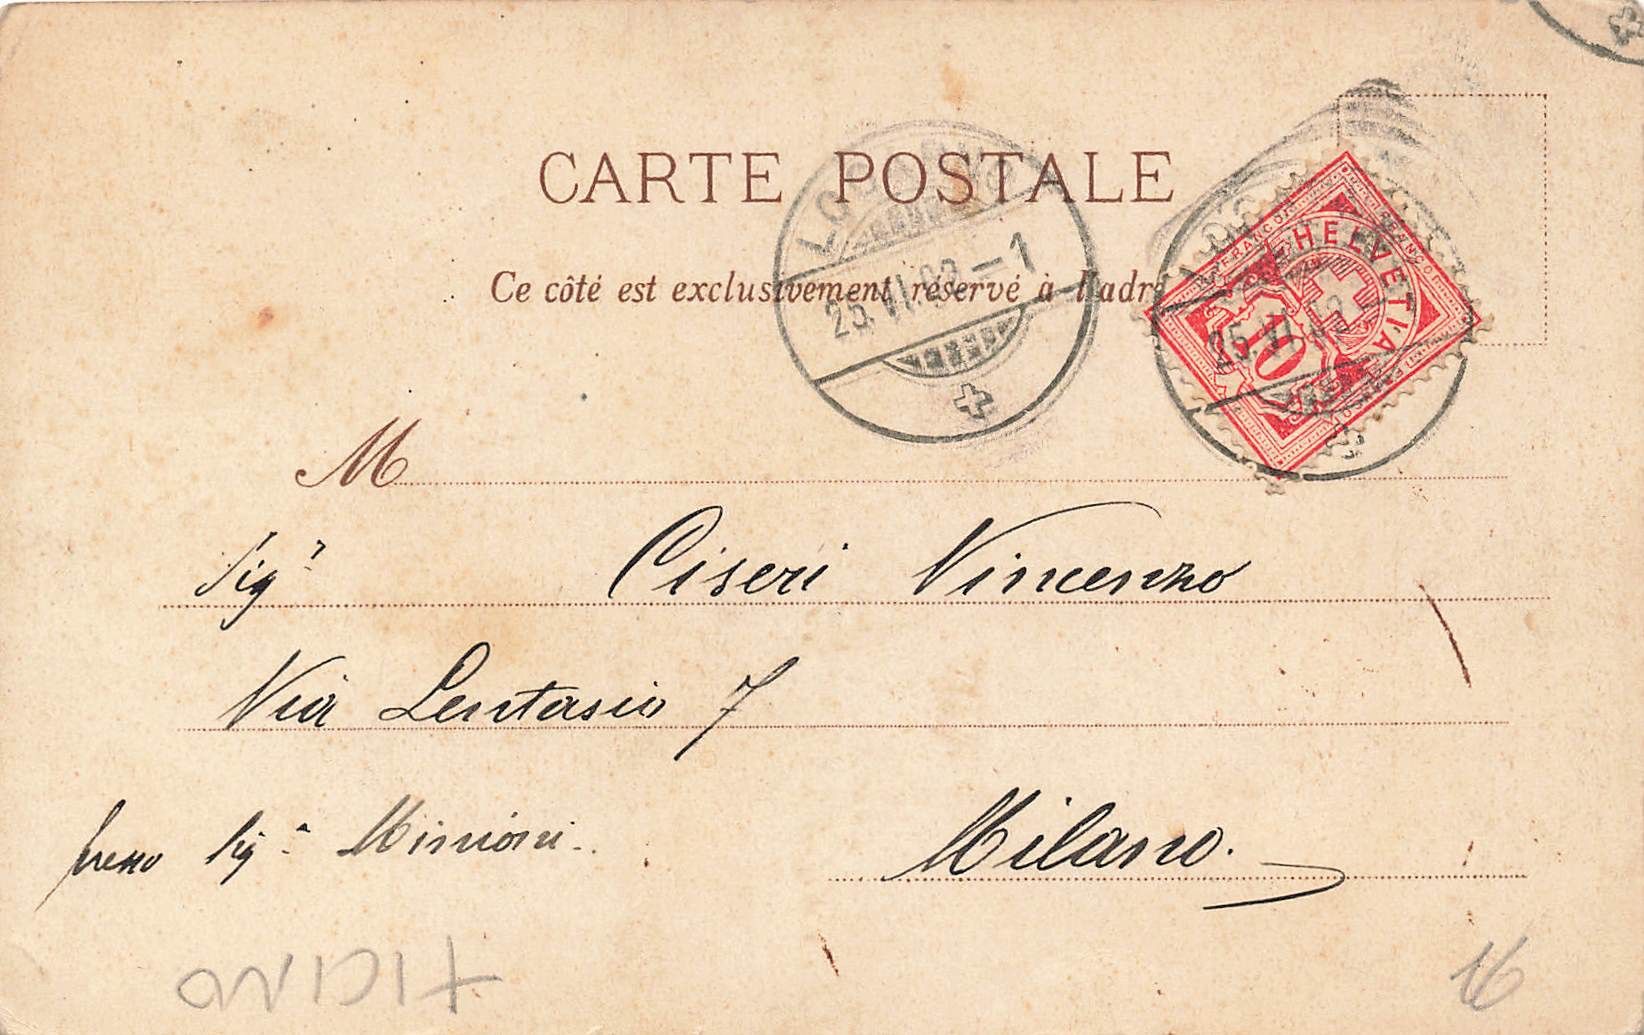 CARTE POSTALE
Ce côté est exclusivement réservé à l'adr
LOCARNO
25.VI.03–1
25.VI.03
FRANCO
FRANCO
HELVETIA
10
M
Sigr Ciseri Vincenzo
Via Lentasio 7
presso Sig.a Minioni.
Milano.
TICINO
16